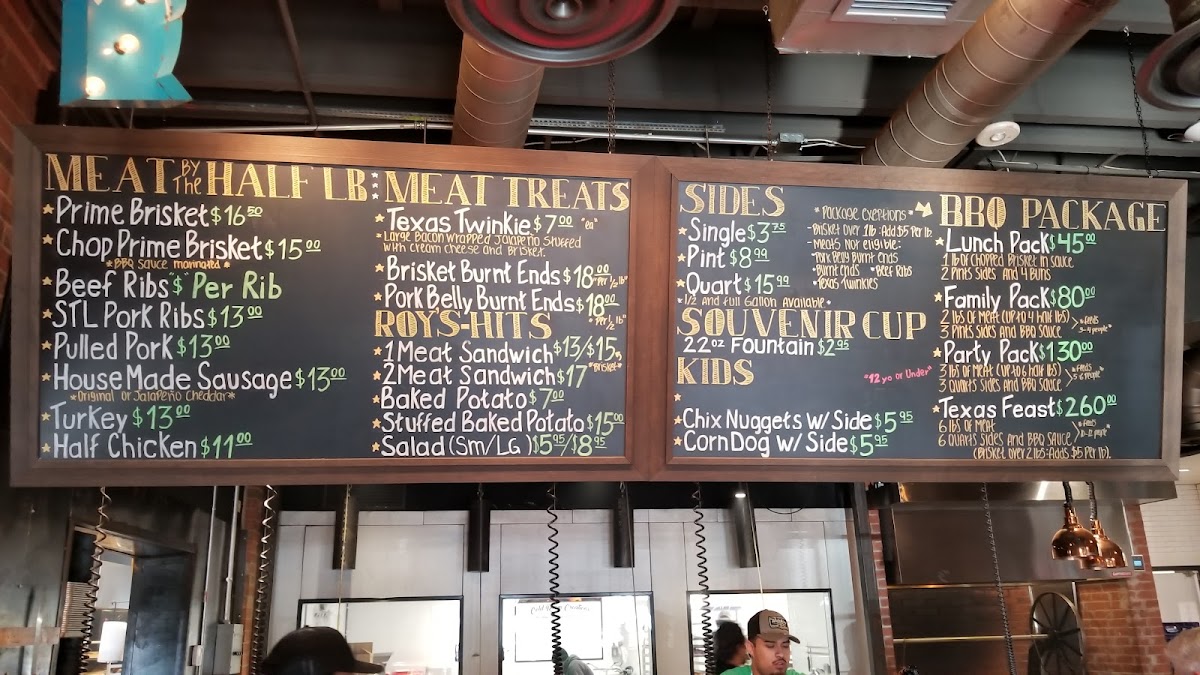 MEAT BY The HALF LB
*Prime Brisket $16 50
*Chop Prime Brisket $15 00
*BBQ Sauce marinated*
*Beef Ribs $ "Per Rib
*STL Pork Ribs $13 00
*Pulled Pork $13 00
*House Made Sausage $13 00
*Original or Jalapeño Cheddar*
*Turkey $13 00
*Half Chicken $11 00
MEAT TREATS
*Texas Twinkie $7 00 "ea"
*Large Bacon Wrapped Jalapeño Stuffed
with Cream Cheese and Brisket.
*Brisket Burnt Ends $18 00 "Per ½ lb"
*Pork Belly Burnt Ends $18 00
"Per ½ lb"
ROY'S-HITS
*1 Meat Sandwich $13/$15
"Brisket"
*2 Meat Sandwich $17
*Baked Potato $7 00
*Stuffed Baked Potato $15 00
*Salad (Sm/LG) $5 95/$8 95
SIDES
*Single $3 75
*Pint $8 99
*Quart $15 99
*1/2 and Full Gallon Available*
*Package Exeptions*
-Brisket over 1 lb: Add $5 Per lb.
-Meats Not Eligible:
*Pork Belly Burnt Ends
*Burnt Ends *Beef Ribs
*Texas Twinkies
SOUVENIR CUP
22oz Fountain $2 95
KIDS
"12 yo or Under"
*
*Chix Nuggets w/ Side $5 95
*Corn Dog w/ Side $5 95
BBQ PACKAGE
*Lunch Pack $45 00
1 lb of Chopped Brisket in Sauce
2 Pints Sides and 4 Buns
*Family Pack $80 00
2 lbs of Meat (up to 4 half lbs)
3 Pints Sides and BBQ Sauce
*Feeds
3-4 people*
*Party Pack $130 00
3 lbs of Meat (up to 6 half lbs)
3 Quarts Sides and BBQ Sauce
*Feeds
5-6 People*
*Texas Feast $260 00
6 lbs of Meat
6 Quarts Sides and BBQ Sauce
*Feeds
10-12 people*
(Brisket over 2 lbs: Adds $5 Per lb).